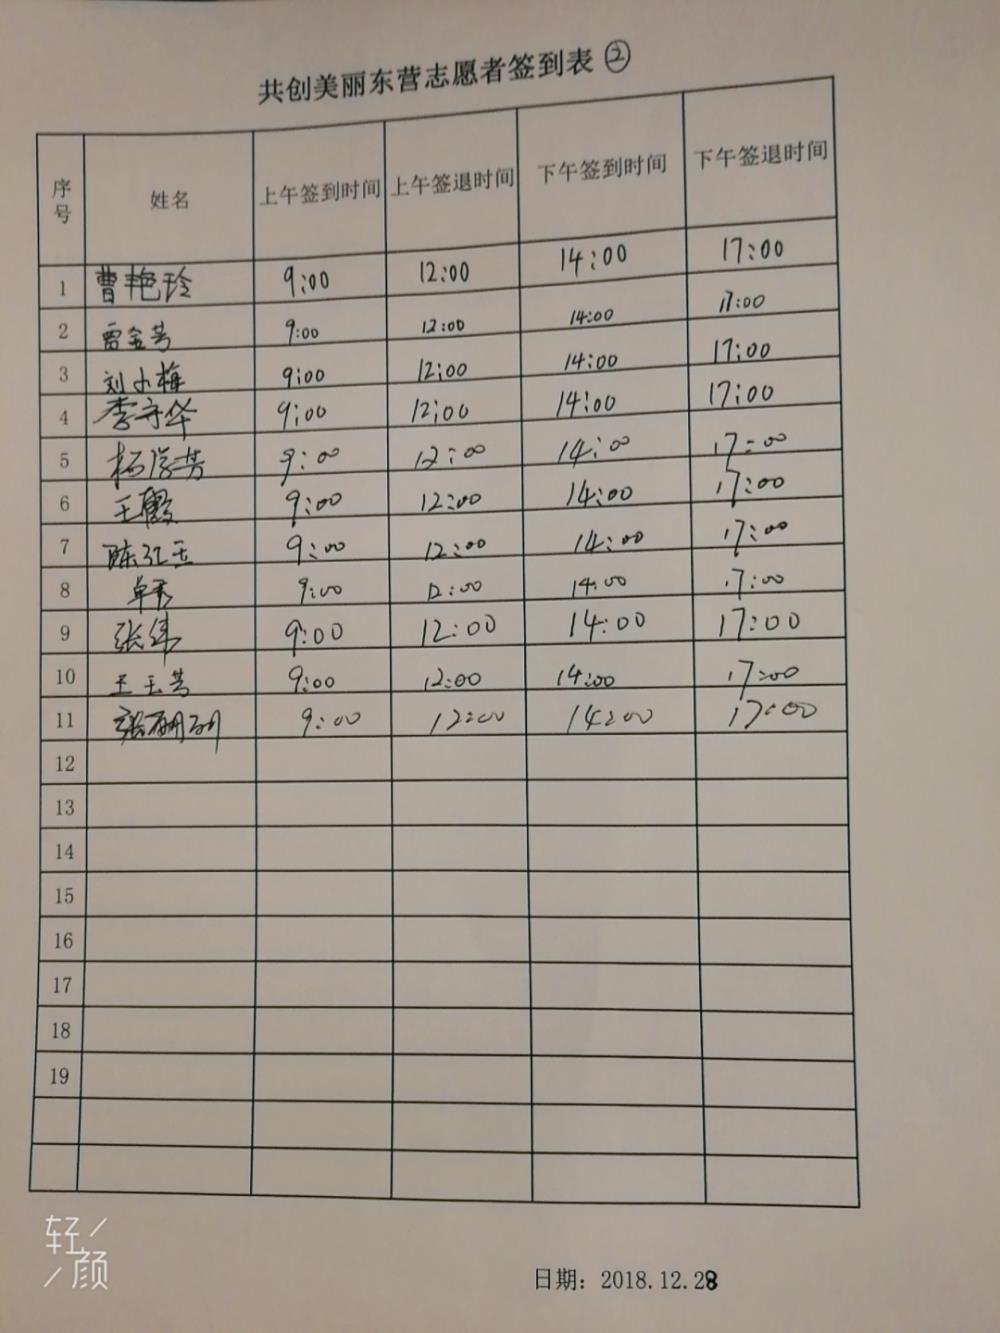 共创美丽东营志愿者签到表 ②
序号 姓名 上午签到时间 上午签退时间 下午签到时间 下午签退时间
1 曹艳玲 9:00 12:00 14:00 17:00
2 雷金芳 9:00 12:00 14:00 17:00
3 刘小梅 9:00 12:00 14:00 17:00
4 李守华 9:00 12:00 14:00 17:00
5 杨学芳 9:00 12:00 14:00 17:00
6 王霞 9:00 12:00 14:00 17:00
7 陈红玉 9:00 12:00 14:00 17:00
8 单秀 9:00 12:00 14:00 17:00
9 张伟 9:00 12:00 14:00 17:00
10 王玉芳 9:00 12:00 14:00 17:00
11 张丽丽 9:00 12:00 14:00 17:00
12
13
14
15
16
17
18
19
轻颜
日期：2018.12.28